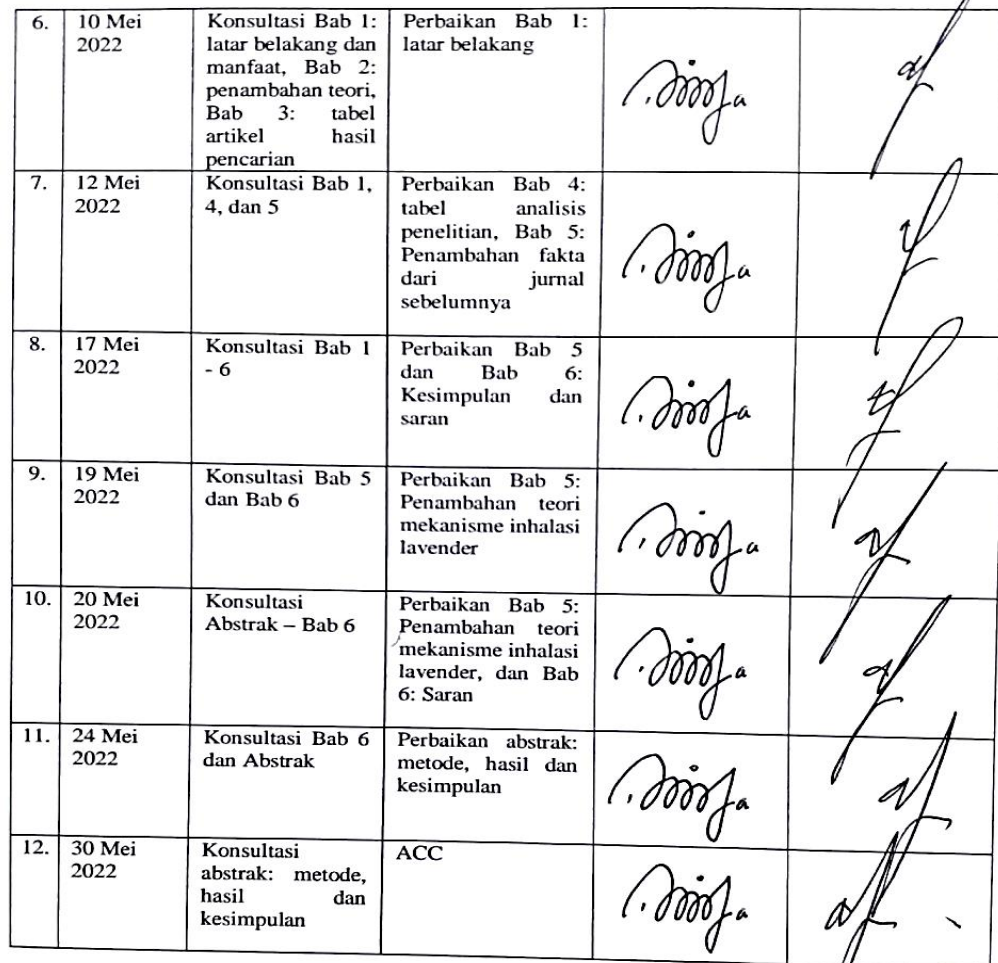 6.
10 Mei
2022
Konsultasi Bab 1:
latar belakang dan
manfaat, Bab 2:
penambahan teori,
Bab 3: tabel
artikel hasil
pencarian
Perbaikan Bab 1:
latar belakang
7.
12 Mei
2022
Konsultasi Bab 1,
4, dan 5
Perbaikan Bab 4:
tabel analisis
penelitian, Bab 5:
Penambahan fakta
dari jurnal
sebelumnya
8.
17 Mei
2022
Konsultasi Bab 1
- 6
Perbaikan Bab 5
dan Bab 6:
Kesimpulan dan
saran
9.
19 Mei
2022
Konsultasi Bab 5
dan Bab 6
Perbaikan Bab 5:
Penambahan teori
mekanisme inhalasi
lavender
10.
20 Mei
2022
Konsultasi
Abstrak – Bab 6
Perbaikan Bab 5:
Penambahan teori
mekanisme inhalasi
lavender, dan Bab
6: Saran
11.
24 Mei
2022
Konsultasi Bab 6
dan Abstrak
Perbaikan abstrak:
metode, hasil dan
kesimpulan
12.
30 Mei
2022
Konsultasi
abstrak: metode,
hasil dan
kesimpulan
ACC